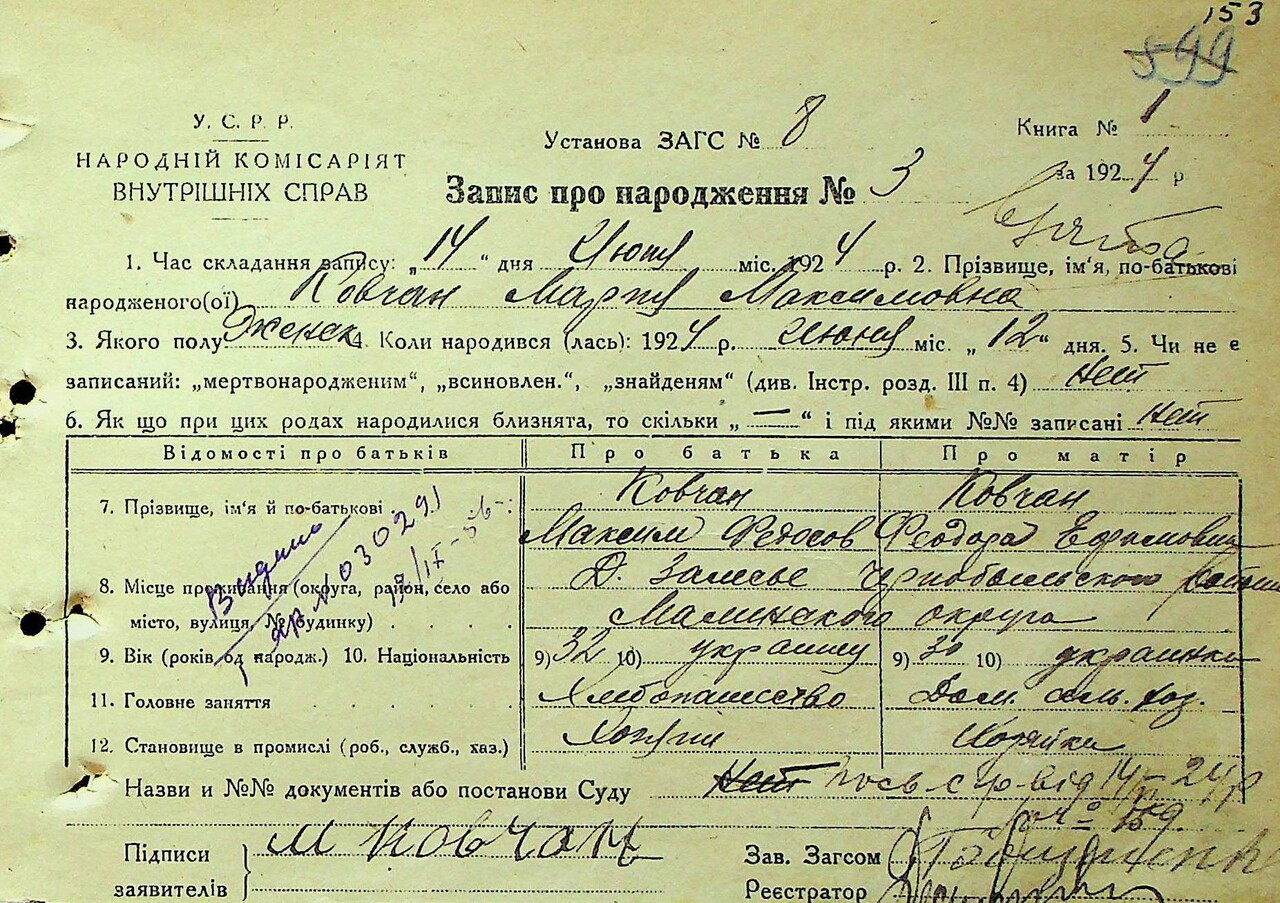 153
599
У. С. Р. Р.
НАРОДНІЙ КОМІСАРІЯТ
ВНУТРІШНІХ СПРАВ
Установа ЗАГС № 8
Книга № 1
за 1924 р
Запис про народження № 3
1. Час складання запису: „14“ дня Июня міс. 1924 р. 2. Прізвище, ім'я, по-батькові
народженого(ої) Ковчан Мария Максимовна
3. Якого полу Женск 4. Коли народився (лась): 1924 р. Июня міс. „12“ дня. 5. Чи не є
записаний: „мертвонародженим“, „всиновлен.“, „знайденям“ (див. Інстр. розд. III п. 4) Нет
6. Як що при цих родах народилися близнята, то скільки „—“ і під якими №№ записані Нет
Відомості про батьків Про батька Про матір
7. Прізвище, ім'я й по-батькові Ковчан Ковчан
Максим Федосов Феодора Ефимовна
8. Місце проживання (округа, район, село або Д. Залесье Чернобыльского
місто, вулиця, № будинку) Малинского округа
Видано
№ 030291
9. Вік (років од народж.) 10. Національність 9) 32 10) украинц 9) 30 10) украинка
11. Головне заняття Хлебопашество Дом. сель. хоз.
12. Становище в промислі (роб., служб., хаз.) Хозяин Хозяйка
Назви и №№ документів або постанови Суду Нет від 14/VI-24 р
№ 159.
Підписи
заявителів
М Ковчан
Зав. Загсом
Реєстратор